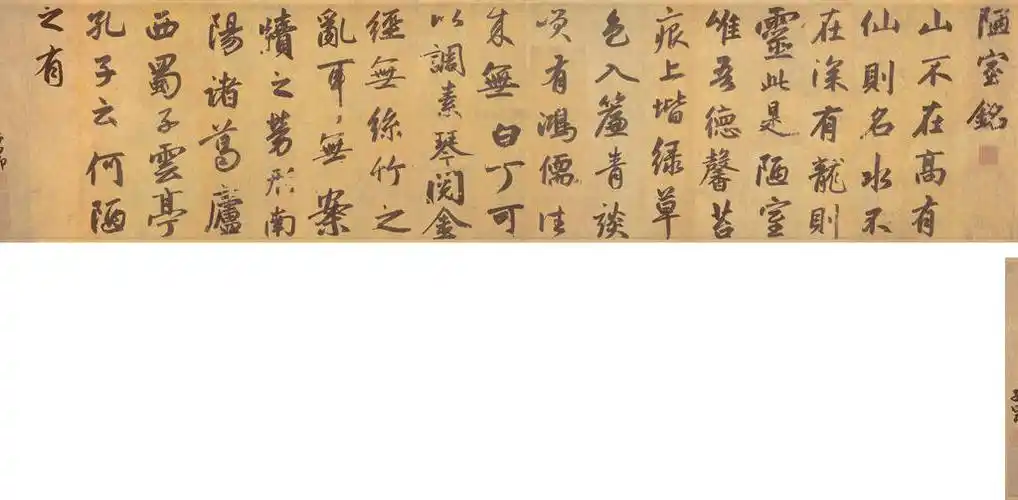 陋室銘
山不在高有
仙則名水不
在深有龍則
靈此是陋室
惟吾德馨苔
痕上堦緑草
色入簾青談
咲有鴻儒往
来無白丁可
以調素琴閱金
經無絲竹之
亂耳無案
牘之勞形南
陽諸葛廬
西蜀子雲亭
孔子云何陋
之有